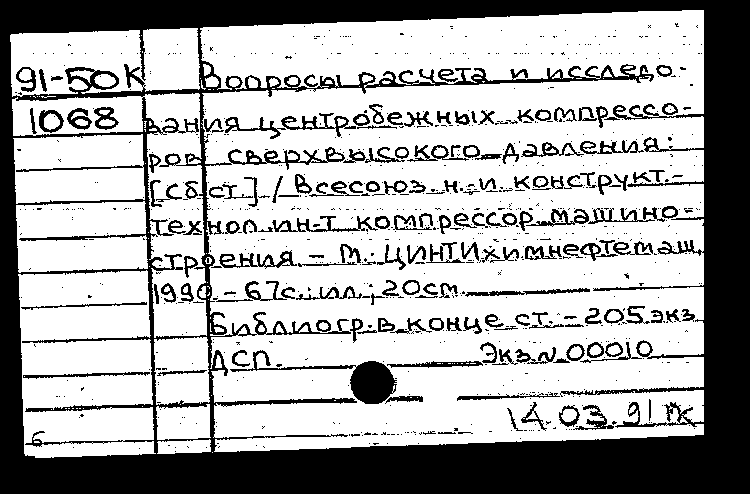 91-50К Вопросы расчета и исследо-
1068 вания центробежных компрессо-
ров сверхвысокого давления:
[Сб ст.] / Всесоюз. н.-и. конструкт.-
технол. ин-т компрессор. машино-
строения. - М.: ЦИНТИхимнефтемаш,
1990. - 67с.: ил.; 20см.
Библиогр. в конце ст. - 205 экз
ДСП. Экз N 00010
14.03.91
6